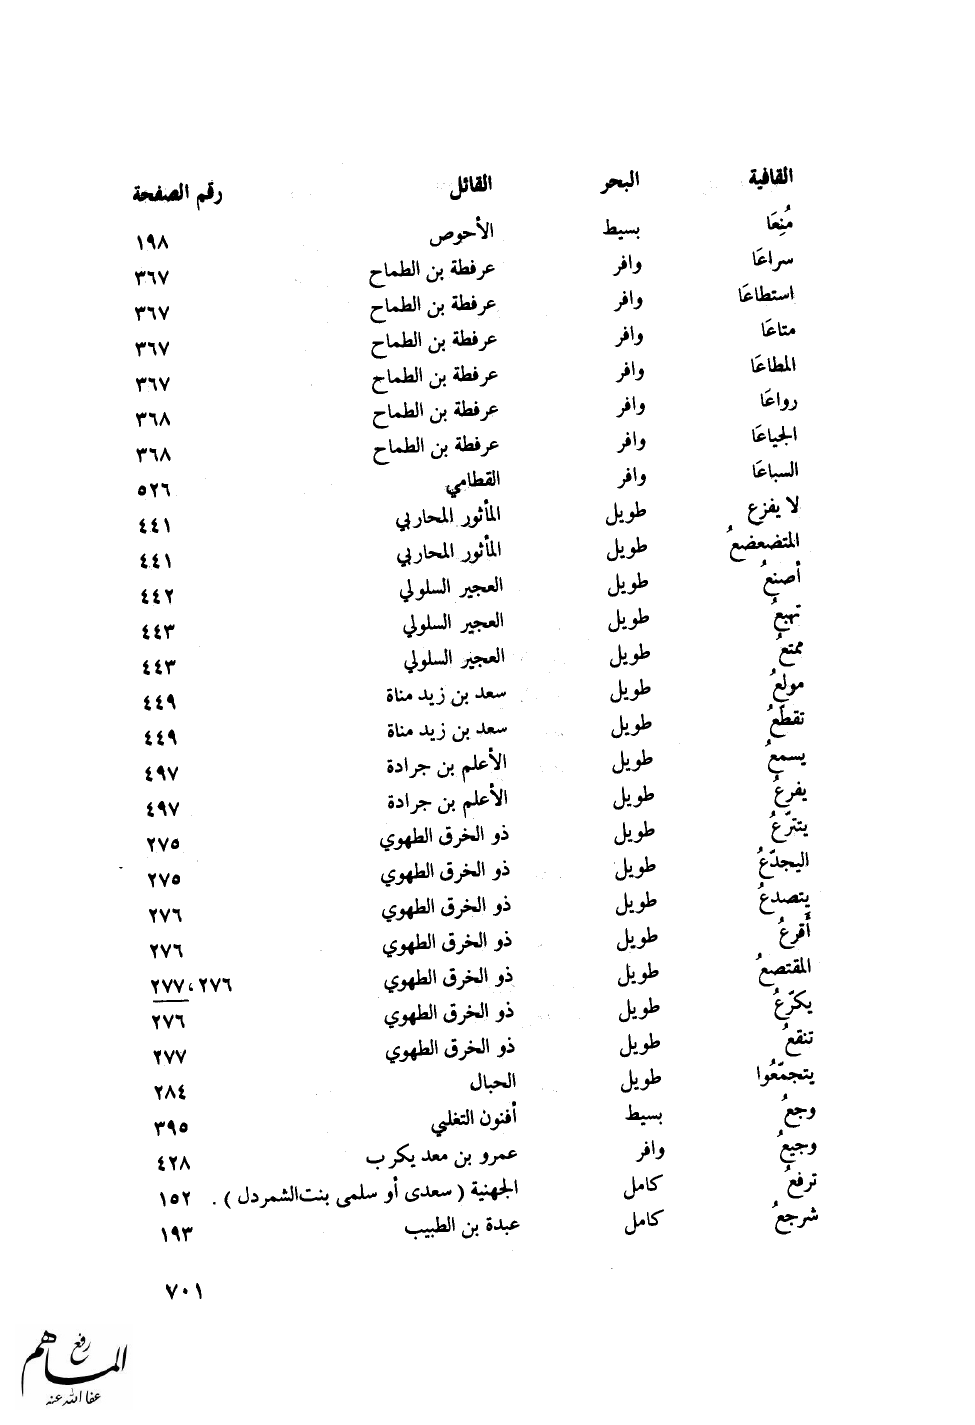 القافية البحر القائل رقم الصفحة
مُنِعَا بسيط الأحوص ١٩٨
سراعَا وافر عرفطة بن الطماح ٣٦٧
استطاعَا وافر عرفطة بن الطماح ٣٦٧
متاعَا وافر عرفطة بن الطماح ٣٦٧
المطاعَا وافر عرفطة بن الطماح ٣٦٧
رواعَا وافر عرفطة بن الطماح ٣٦٨
الجياعَا وافر عرفطة بن الطماح ٣٦٨
السباعَا وافر القطامي ٥٢٦
لا يفزع طويل المأثور المحاربي ٤٤١
المتضعضعُ طويل المأثور المحاربي ٤٤١
أصنعُ طويل العجير السلولي ٤٤٢
تهبعُ طويل العجير السلولي ٤٤٣
ممتعُ طويل العجير السلولي ٤٤٣
مولعُ طويل سعد بن زيد مناة ٤٤٩
تقطّعُ طويل سعد بن زيد مناة ٤٤٩
يسمعُ طويل الأعلم بن جرادة ٤٩٧
يفرعُ طويل الأعلم بن جرادة ٤٩٧
يتترّعُ طويل ذو الخرق الطهوي ٢٧٥
اليجدّعُ طويل ذو الخرق الطهوي ٢٧٥
يتصدعُ طويل ذو الخرق الطهوي ٢٧٦
أَقرعُ طويل ذو الخرق الطهوي ٢٧٦
المقتصعُ طويل ذو الخرق الطهوي ٢٧٦، ٢٧٧
يكرّعُ طويل ذو الخرق الطهوي ٢٧٦
تنقعُ طويل ذو الخرق الطهوي ٢٧٧
يتجمّعُوا طويل الحبال ٢٨٤
وجعُ بسيط أفنون التغلبي ٣٩٥
وجيعُ وافر عمرو بن معد يكرب ٤٢٨
ترفعُ كامل الجهنية ( سعدى أو سلمى بنت الشمردل ) . ١٥٢
شرجعُ كامل عبدة بن الطبيب ١٩٣
٧٠١
رفع
المساهم
عفا الله عنه